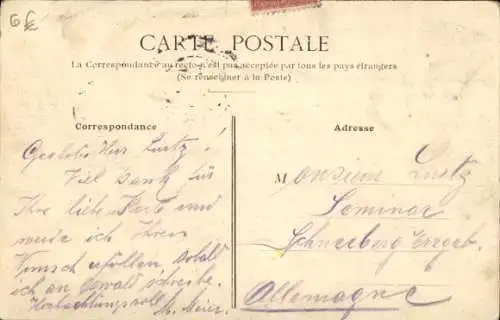 6 €
CARTE POSTALE
La Correspondance au recto n'est pas acceptée par tous les pays étrangers
(Se renseigner à la Poste)
Correspondance
Geehrter Herr Lustz!
Viel Dank für
Ihre liebe Karte und
werde ich Ihren
Wunsch erfüllen sobald
ich an Oswald schreibe.
Hochachtungsvoll M. Meier.
Adresse
Monsieur Lustz
Seminar
Schneeberg Erzgeb.
Allemagne